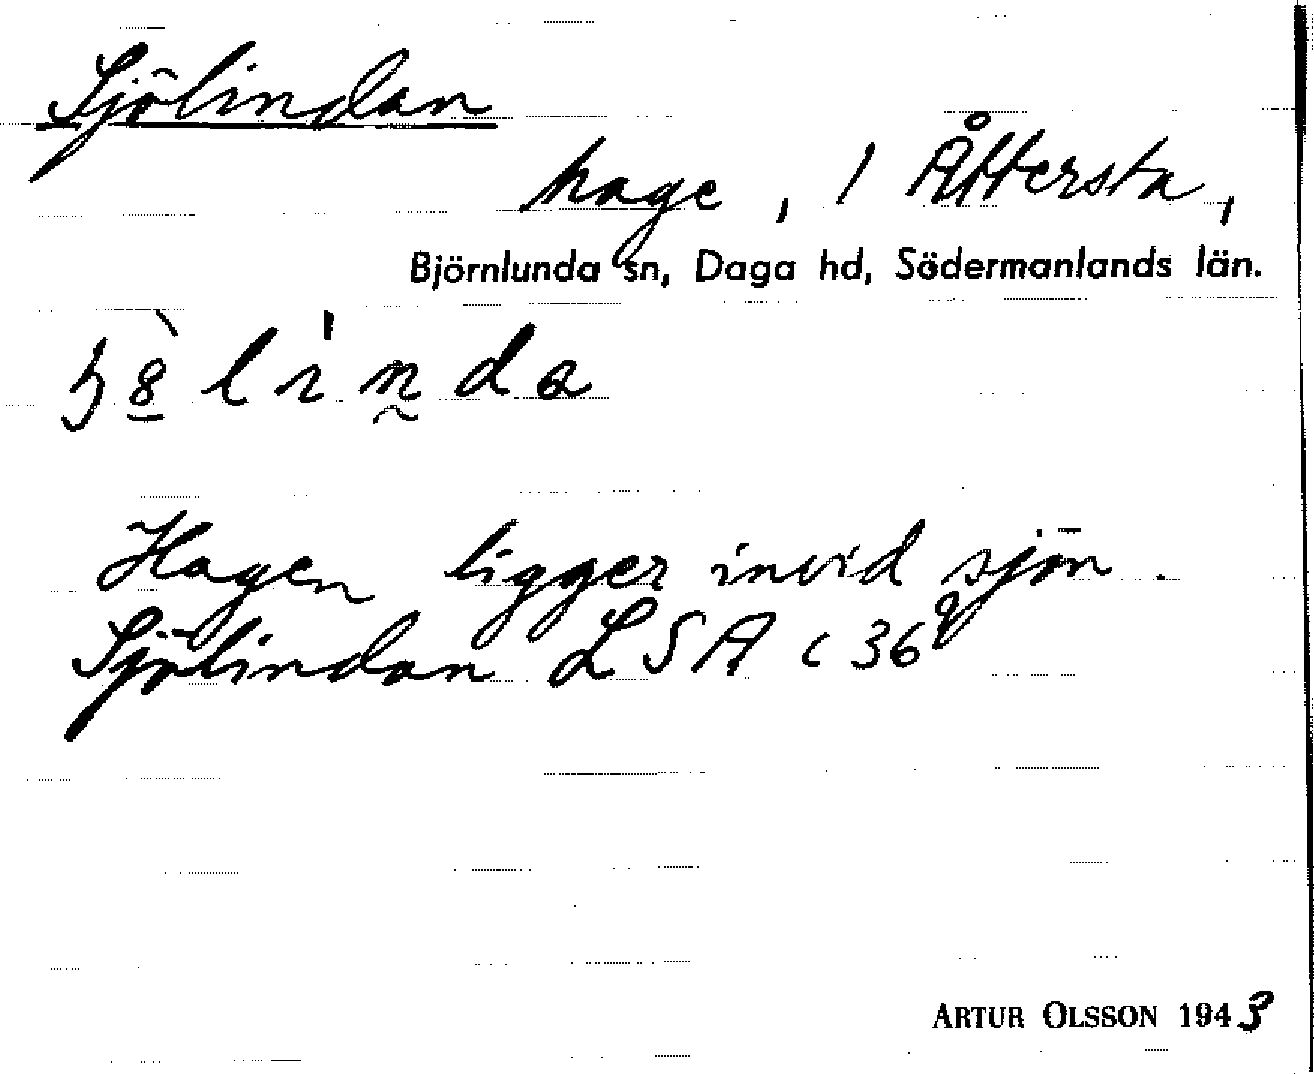 Sjölindan
hage, 1 Åttersta,
Björnlunda sn, Daga hd, Södermanlands län.
Hagen ligger invid sjön.
Sjölindan LSA C 36
ARTUR OLSSON 1943